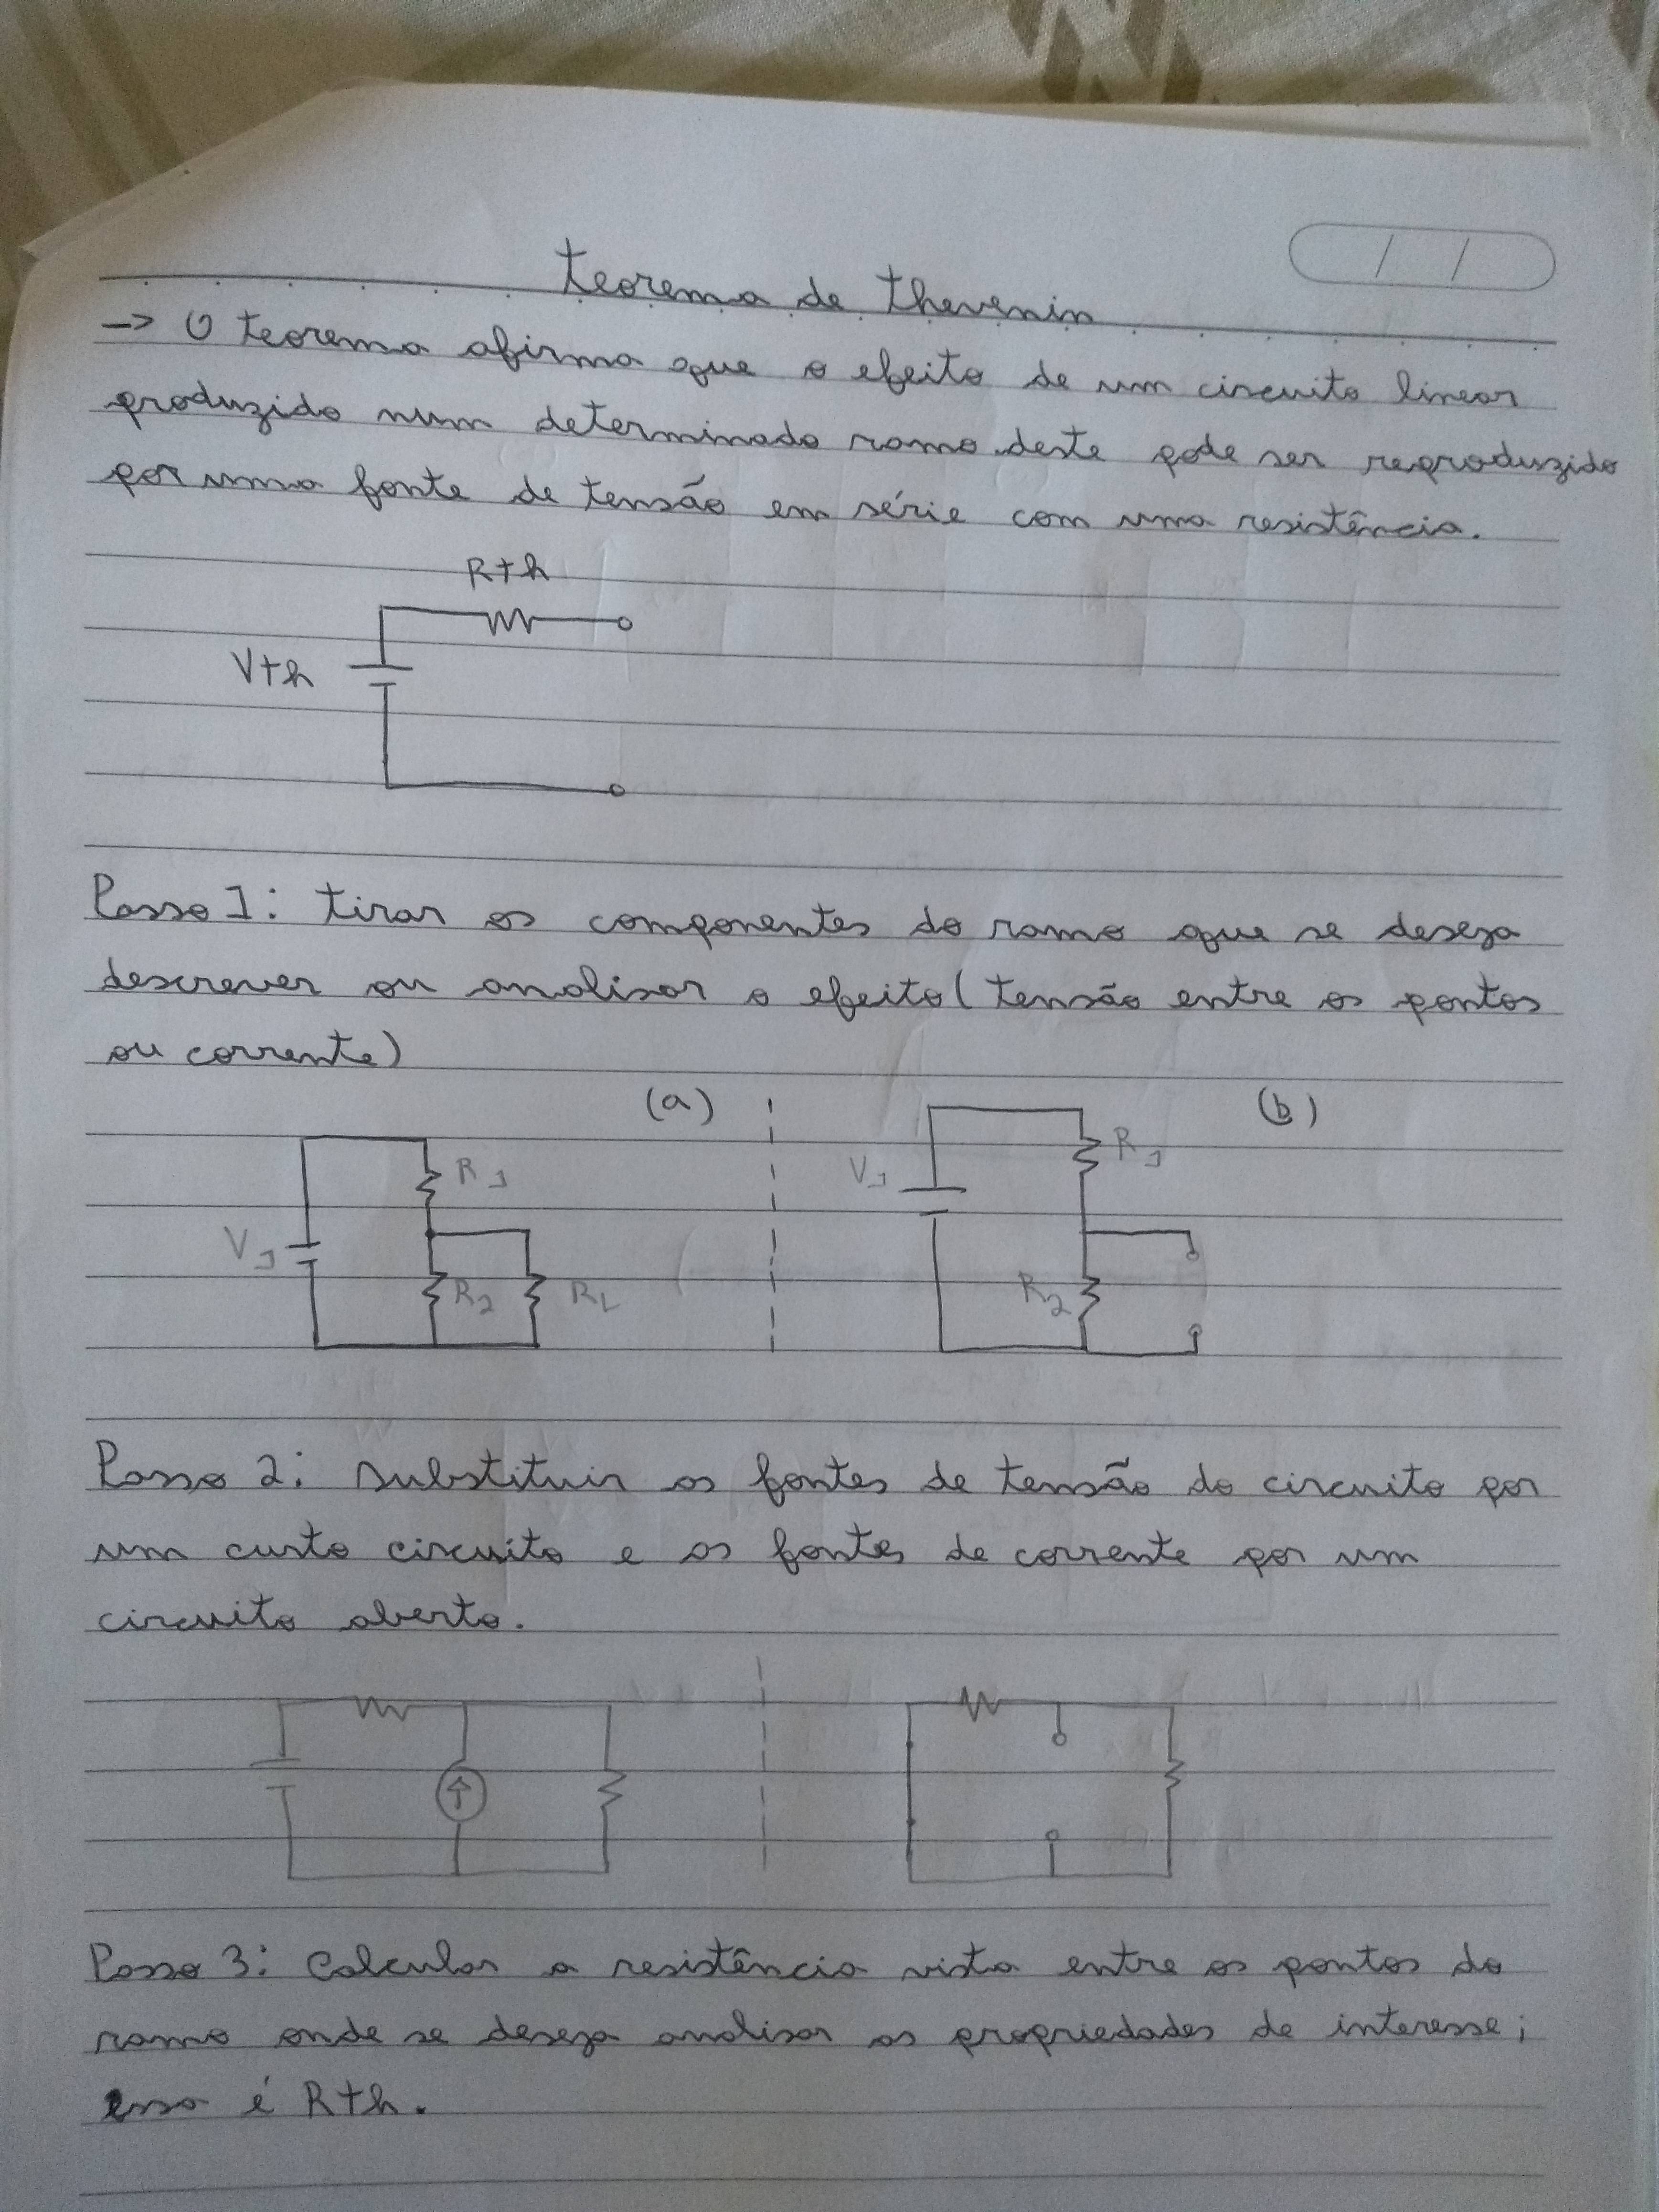 Teorema de Thevenin
-> O teorema afirma que o efeito de um circuito linear
produzido num determinado ramo deste pode ser reproduzido
por uma fonte de tensão em série com uma resistência.
Rth
Vth
Passo 1: Tirar os componentes do ramo que se deseja
descrever ou analisar o efeito (tensão entre os pontos
ou corrente)
(a) (b)
V1 R1 R2 RL
V1 R1 R2
Passo 2: Substituir as fontes de tensão do circuito por
um curto circuito e as fontes de corrente por um
circuito aberto.
Passo 3: Calcular a resistência vista entre os pontos do
ramo onde se deseja analisar as propriedades de interesse;
essa é Rth.